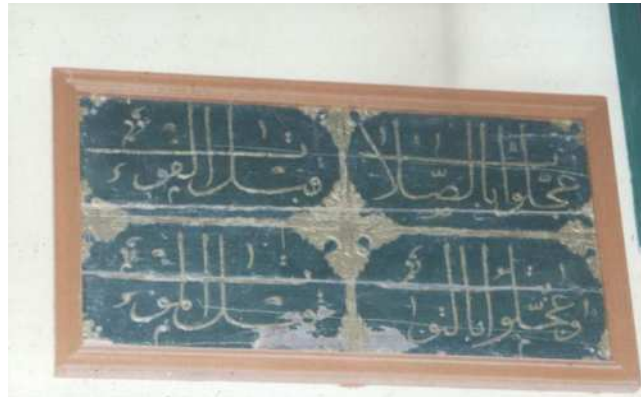 عجلوا بالصلاة قبل الفوت
وعجلوا بالتوبة قبل الموت